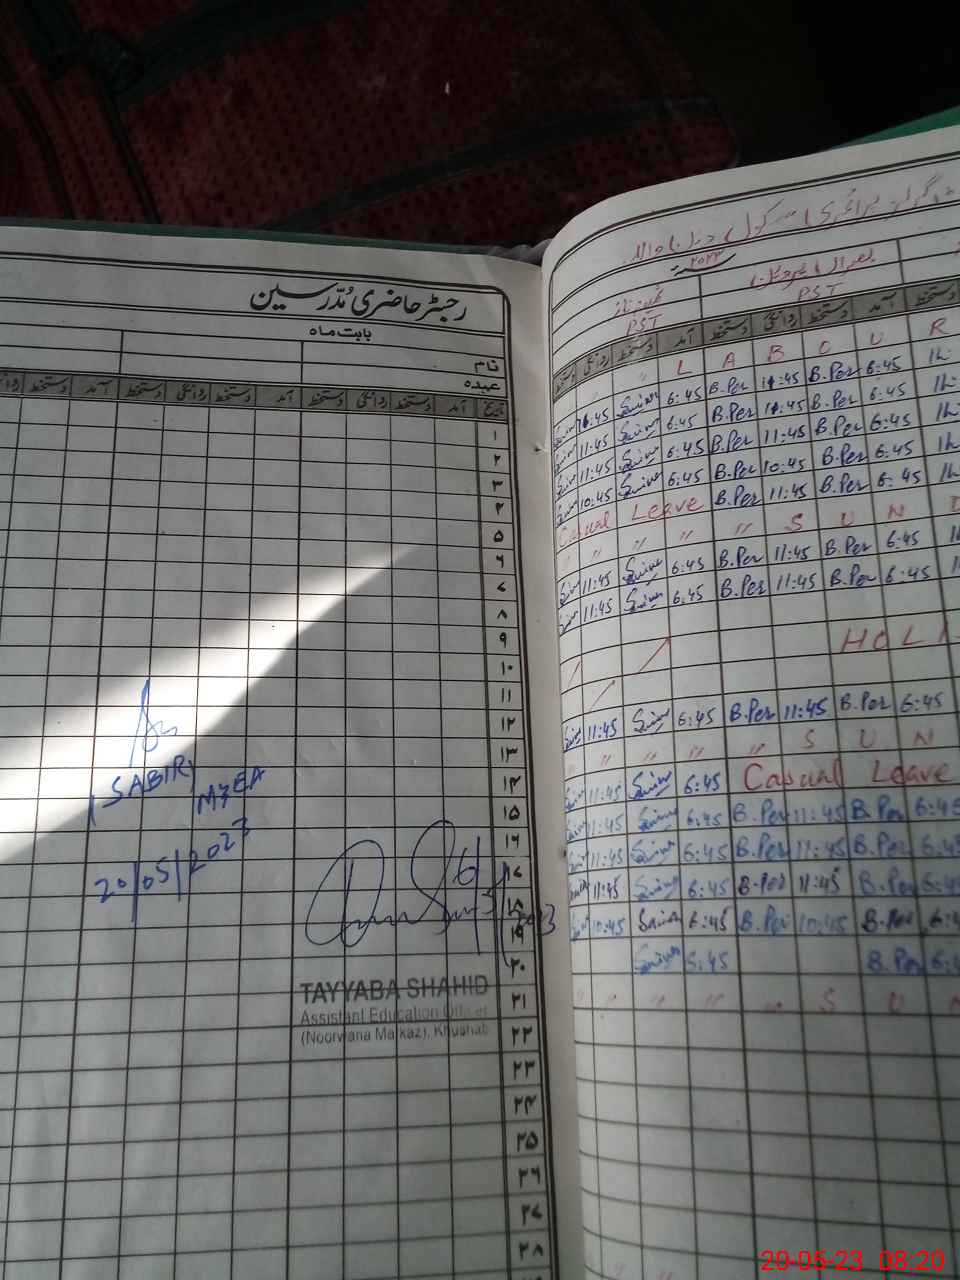 رجسٹر حاضری مُدّرسین
بابت ماہ
نام
عہدہ
تاریخ آمد دستخط روانگی دستخط آمد دستخط روانگی دستخط آمد دستخط
۱
۲
۳
۴
۵
۶
۷
۸
۹
۱۰
۱۱
۱۲
۱۳
۱۴
۱۵
۱۶
۱۷
۱۸
۱۹
۲۰
۲۱
۲۲
۲۳
۲۴
۲۵
۲۶
۲۷
۲۸
SABIR
MZEA
20/05/2023
TAYYABA SHAHID
Assistant Education Officer
(Noorwana Markaz), Khushab
۲۰۲۳
PST PST
دستخط روانگی دستخط آمد دستخط روانگی دستخط آمد دستخط
L A B O U R
11:45 6:45 B.Per 11:45 B.Per 6:45
11:45 6:45 B.Per 11:45 B.Per 6:45
11:45 6:45 B.Per 11:45 B.Per 6:45
10:45 6:45 B.Per 10:45 B.Per 6:45
Casual Leave B.Per 11:45 B.Per 6:45
" " " " S U N D
11:45 6:45 B.Per 11:45 B.Per 6:45
11:45 6:45 B.Per 11:45 B.Per 6:45
HOLI
11:45 6:45 B.Per 11:45 B.Per 6:45
" " " " S U N
11:45 6:45 Casual Leave
11:45 6:45 B.Per 11:45 B.Per 6:45
11:45 6:45 B.Per 11:45 B.Per 6:45
11:45 6:45 B.Per 11:45 B.Per 6:45
10:45 6:45 B.Per 10:45 B.Per 6:4
6:45 B.Per 6:4
" " " " S U N
20-05-23 08:20